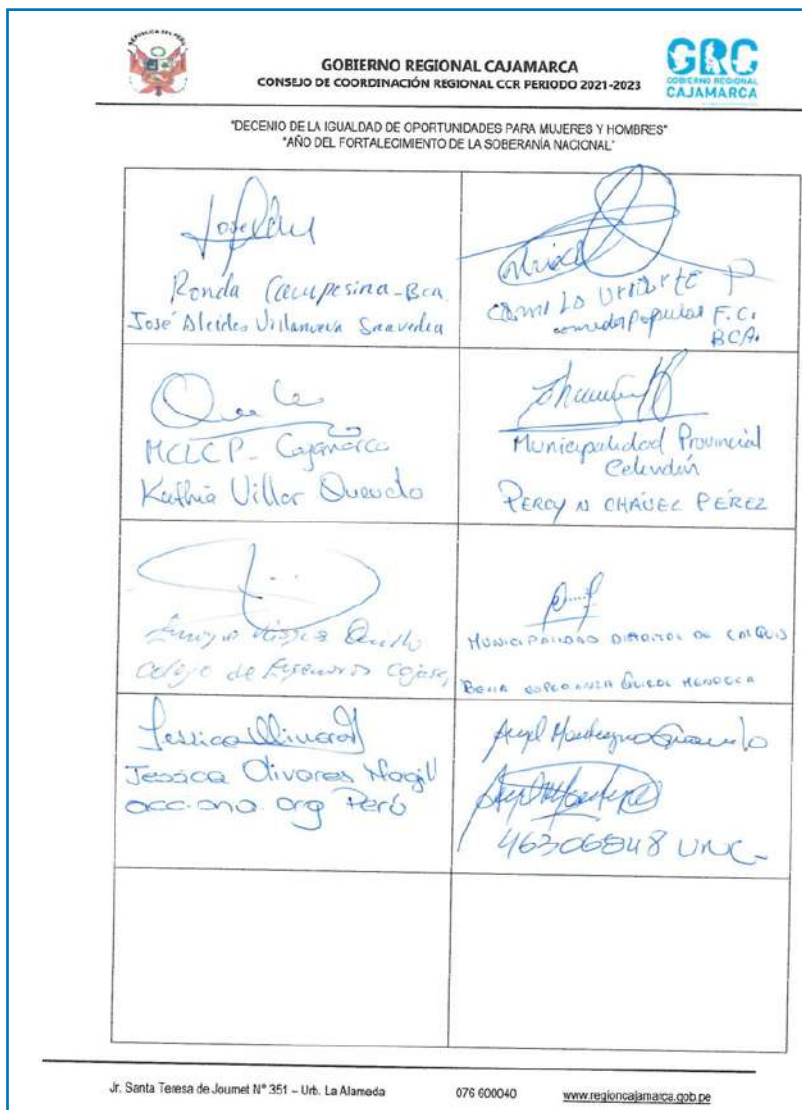 REPUBLICA DEL PERÚ
GOBIERNO REGIONAL CAJAMARCA
CONSEJO DE COORDINACIÓN REGIONAL CCR PERIODO 2021-2023
GRC
GOBIERNO REGIONAL
CAJAMARCA
"DECENIO DE LA IGUALDAD DE OPORTUNIDADES PARA MUJERES Y HOMBRES"
"AÑO DEL FORTALECIMIENTO DE LA SOBERANÍA NACIONAL"
Ronda Campesina-Bca.
José Alcides Villanueva Saavedra
Camilo Uriarte P
comedor Popular F.C.
BCA.
MCLCP- Cajamarca
Kathia Villar Quevedo
Municipalidad Provincial
Celendín
PERCY N CHÁVEZ PÉREZ
Colegio de
MUNICIPALIDAD DISTRITAL DE
Jessica Olivares
Jessica Olivares Nagill
acc.ona.org Perú
Angel
46306848 UNC-
Jr. Santa Teresa de Journet N° 351 – Urb. La Alameda
076 600040
www.regioncajamarca.gob.pe